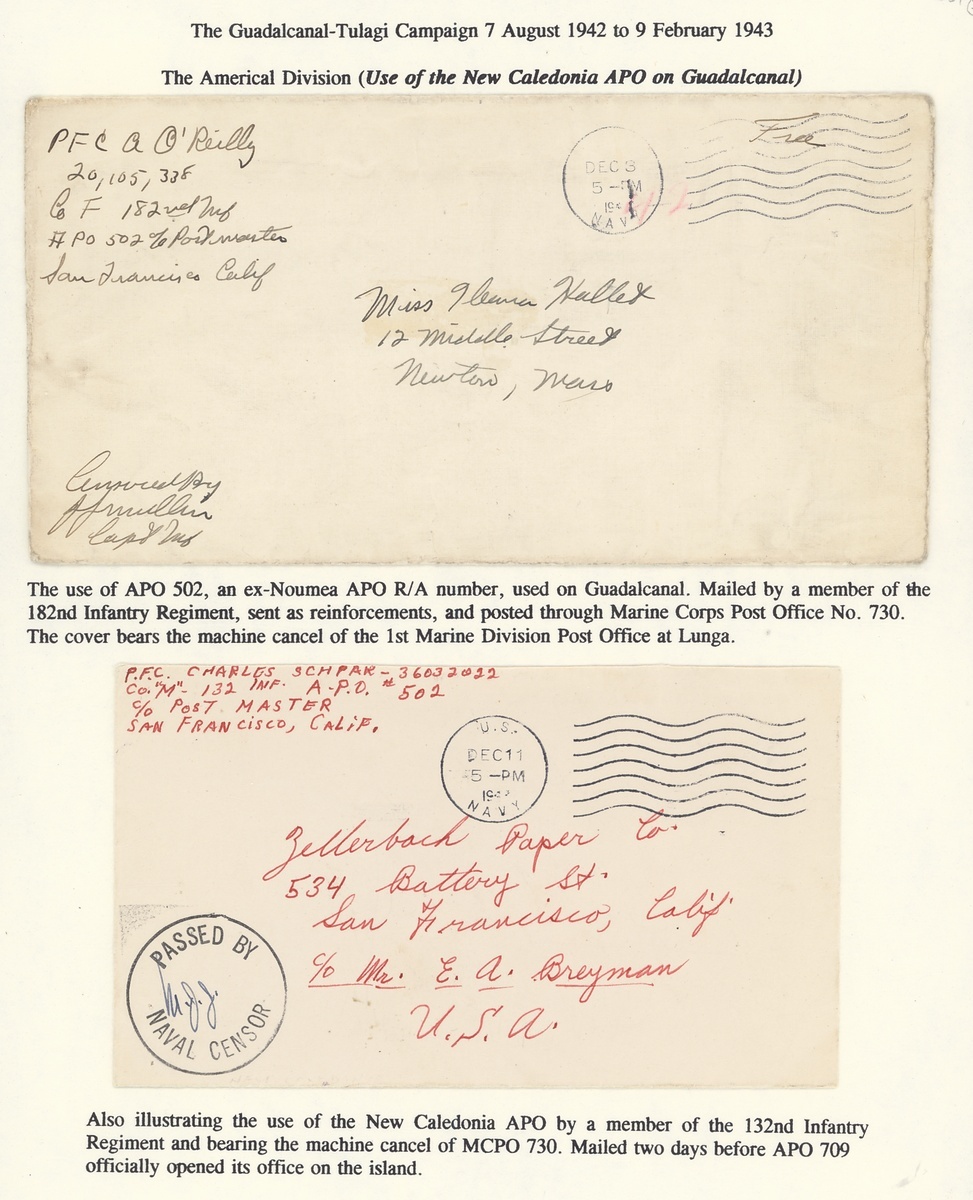 The Guadalcanal-Tulagi Campaign 7 August 1942 to 9 February 1943
The Americal Division (Use of the New Caledonia APO on Guadalcanal)
PFC A O'Reilly
20,105,338
Co F 182nd Inf
APO 502 c/o Postmaster
San Francisco Calif
DEC 3
5-PM
NAV
Free
Miss
12 Middle Street
Newton, Mass
Censored By
Capt Inf
The use of APO 502, an ex-Noumea APO R/A number, used on Guadalcanal. Mailed by a member of the
182nd Infantry Regiment, sent as reinforcements, and posted through Marine Corps Post Office No. 730.
The cover bears the machine cancel of the 1st Marine Division Post Office at Lunga.
P.F.C. CHARLES SCHPAR-36032022
Co. "M"- 132 INF. A-P.O. #502
c/o POST MASTER
SAN FRANCISCO, CALIF.
U.S.
DEC 11
5-PM
NAVY
Zellerbach Paper Co.
534 Battery St.
San Francisco, Calif
c/o Mr. E. A. Breyman
U.S.A.
PASSED BY
M.J.J.
NAVAL CENSOR
Also illustrating the use of the New Caledonia APO by a member of the 132nd Infantry
Regiment and bearing the machine cancel of MCPO 730. Mailed two days before APO 709
officially opened its office on the island.